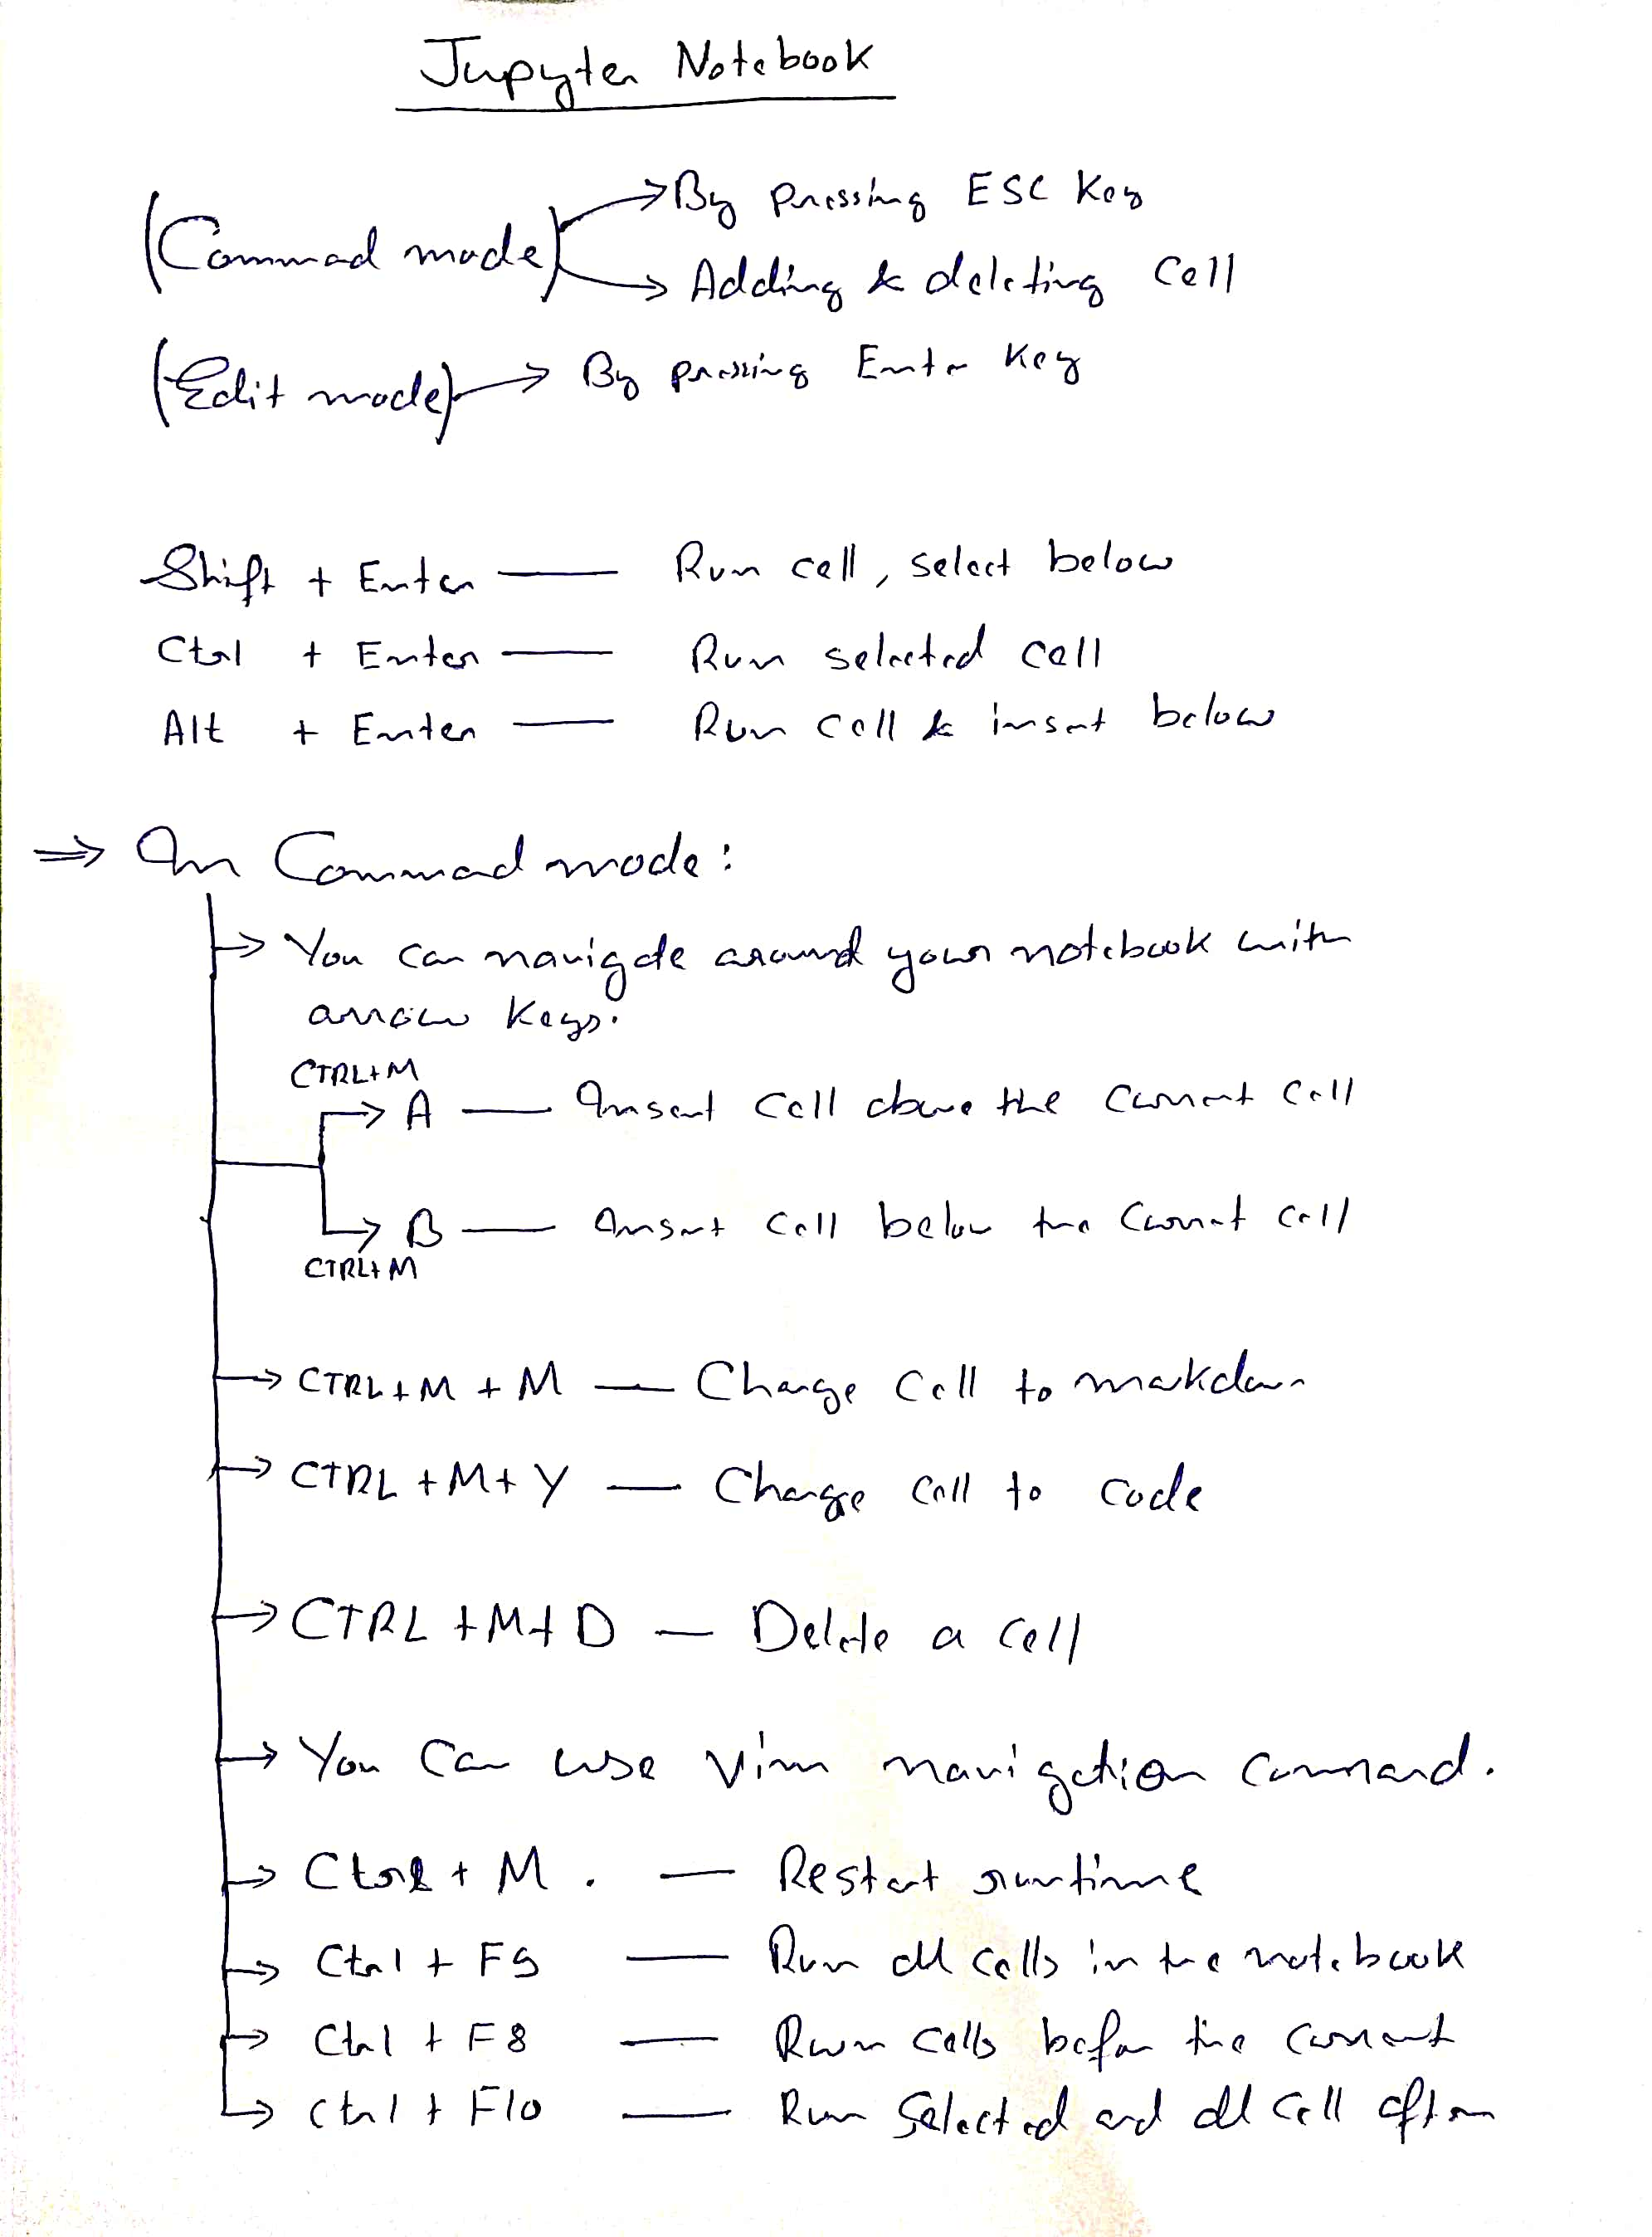 Jupyter Notebook
(Commad mode) → By pressing ESC Key
→ Adding & deleting Cell
(Edit mode) → By pressing Enter Key
Shift + Enter — Run cell, select below
Ctrl + Enter — Run selected cell
Alt + Enter — Run cell & insert below
⇒ In Commad mode:
→ You can navigate around your notebook with
arrow keys.
CTRL+M
→ A — Insert Cell above the Current Cell
→ B — Insert Cell below the Current Cell
CTRL+M
→ CTRL+M + M — Change Cell to markdown
→ CTRL+M+Y — Change Cell to code
→ CTRL+M+D — Delete a cell
→ You Can use Vim navigation command.
→ Ctrl + M . — Restart runtime
→ Ctrl + F9 — Run all cells in the notebook
→ Ctrl + F8 — Run cells before the current
→ Ctrl + F10 — Run Selected and all Cell after